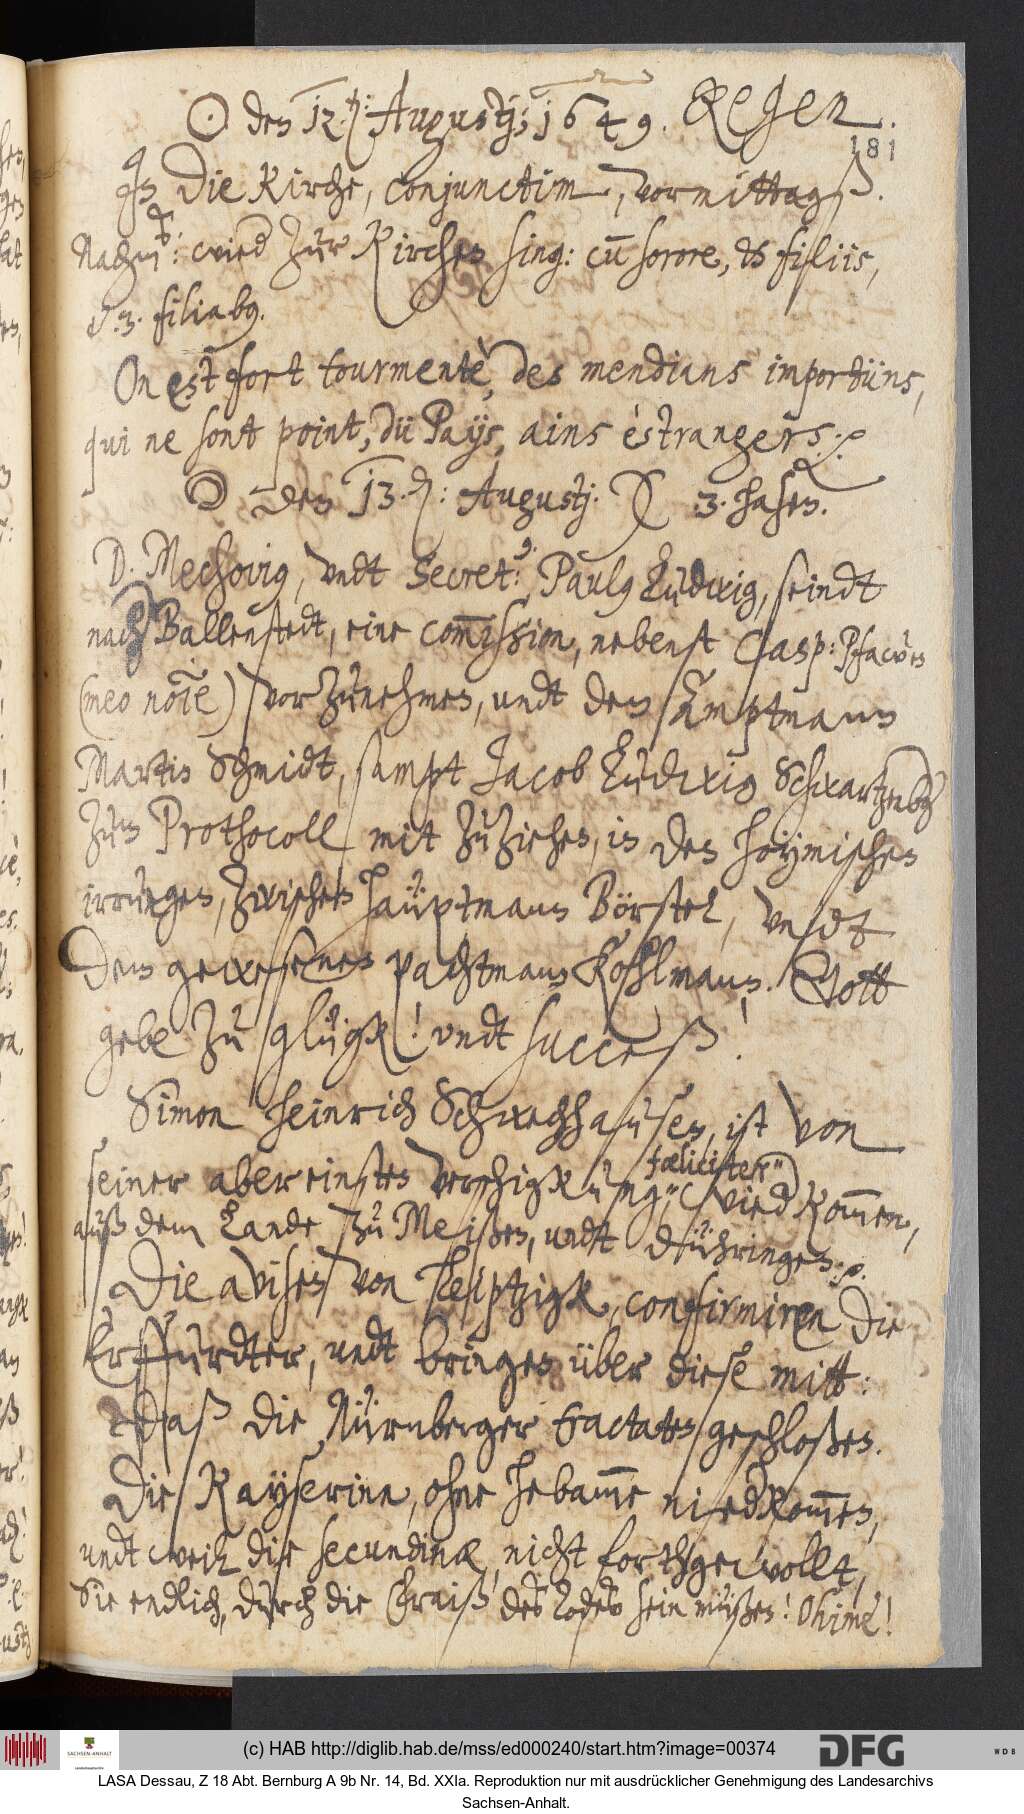 ☉ den 12. t: Augustj; 1649. Regen.
181
In die Kirche, conjunctim, vormittagß.
Nachm: wied zur Kirchen sing: cū sorore, & filiis,
& .3. filiab9.
On est fort tourmentè, des mendians importüns,
qui ne sont point, dü Pays, ains èstrangers.
☽ den 13. t: Augustj. 3. hasen.
D. Mechovig, undt Secret: Paul9 Ludwig, seindt
nach Ballenstedt, eine com̄ission, nebenst Casp: Pfawen
(meo no͞ie) vorzunehmen, undt den Amptmann
Martin Schmidt, sampt Jacob Ludwig Schwartzenb
zum Prothocoll mit zuziehen, in den Hoymischen
irrungen, zwischen Hauptmann Börstel, undt
dem gewesenen pachtmann Kohlmann. Gott
gebe zu glügk! undt succeß!
Simon Heinrich Schwechhausen, ist von
seiner abereinsten verschigkung, (fœliciter)
wied kom̄en,
auß dem Lande zu Meißen, undt Dühringen.
Die avisen von Leiptzigk, confirmiren die
Erffurdter, undt bringen über diese mitt:
Daß die Nürnberger tractaten geschloßen.
Die Kayserinn, ohne Hebam̄e niedkom̄en,
undt weil die secundinæ, nicht forthgewollt,
Sie endlich, durch die Craiß des Todes sein müßen! Ohimè!
(c) HAB http://diglib.hab.de/mss/ed000240/start.htm?image=00374
SACHSEN-ANHALT
DFG
WDB
LASA Dessau, Z 18 Abt. Bernburg A 9b Nr. 14, Bd. XXIa. Reproduktion nur mit ausdrücklicher Genehmigung des Landesarchivs
Sachsen-Anhalt.